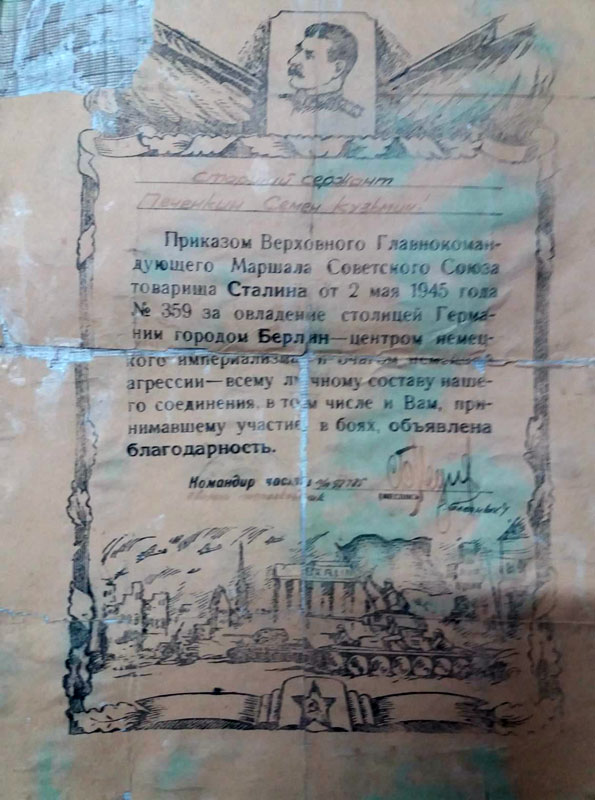 Старший сержант
Печенкин Семен Кузьмич
Приказом Верховного Главнокоман-
дующего Маршала Советского Союза
товарища Сталина от 2 мая 1945 года
№ 359 за овладение столицей Герма-
нии городом Берлин—центром немец-
кого империализма и очагом немецкой
агрессии—всему личному составу наше-
го соединения, в том числе и Вам, при-
нимавшему участие в боях, объявлена
благодарность.
Командир части